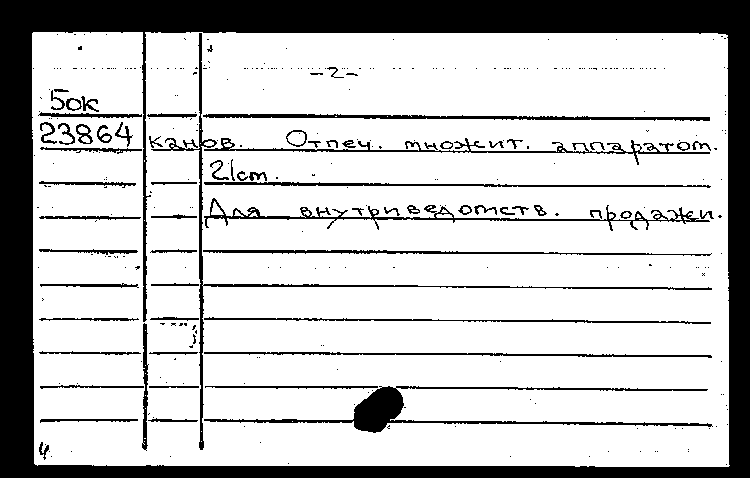 -2-
50к
23864 канов. Отпеч. множит. аппаратом.
21cm.
Для внутриведомств. продажи.
4